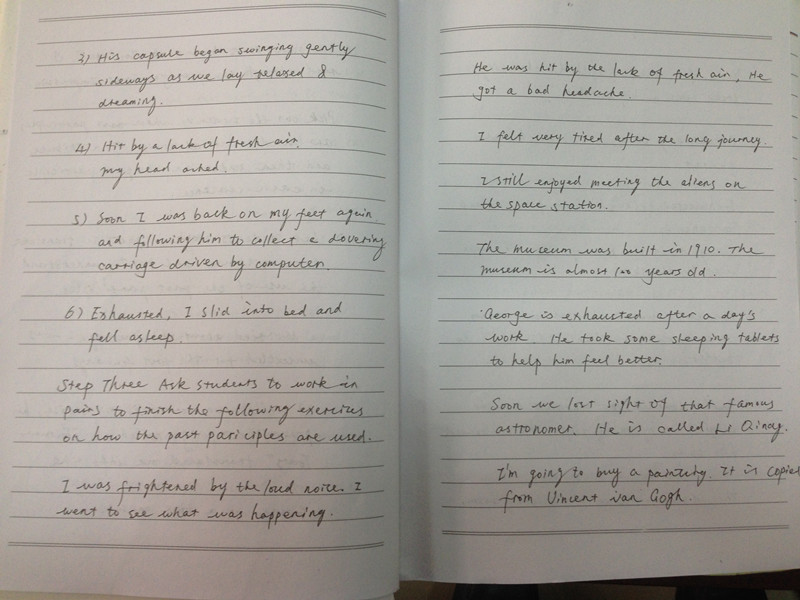 3) His capsule began swinging gently
sideways as we lay relaxed &
dreaming.
4) Hit by a lack of fresh air,
my head ached.
5) Soon I was back on my feet again
and following him to collect a hovering
carriage driven by computer.
6) Exhausted, I slid into bed and
fell asleep.
Step Three Ask students to work in
pairs to finish the following exercises
on how the past pariciples are used.
I was frightened by the loud noice. I
went to see what was happening.
He was hit by the lack of fresh air, He
got a bad headache.
I felt very tired after the long journey.
I still enjoyed meeting the aliens on
the space station.
The museum was built in 1910. The
museum is almost 100 years old.
George is exhausted after a day's
work. He took some sleeping tablets
to help him feel better.
Soon we lost sight of that famous
astronomer. He is called Li Qinag.
I'm going to buy a painting. It is copied
from Vincent van Gogh.